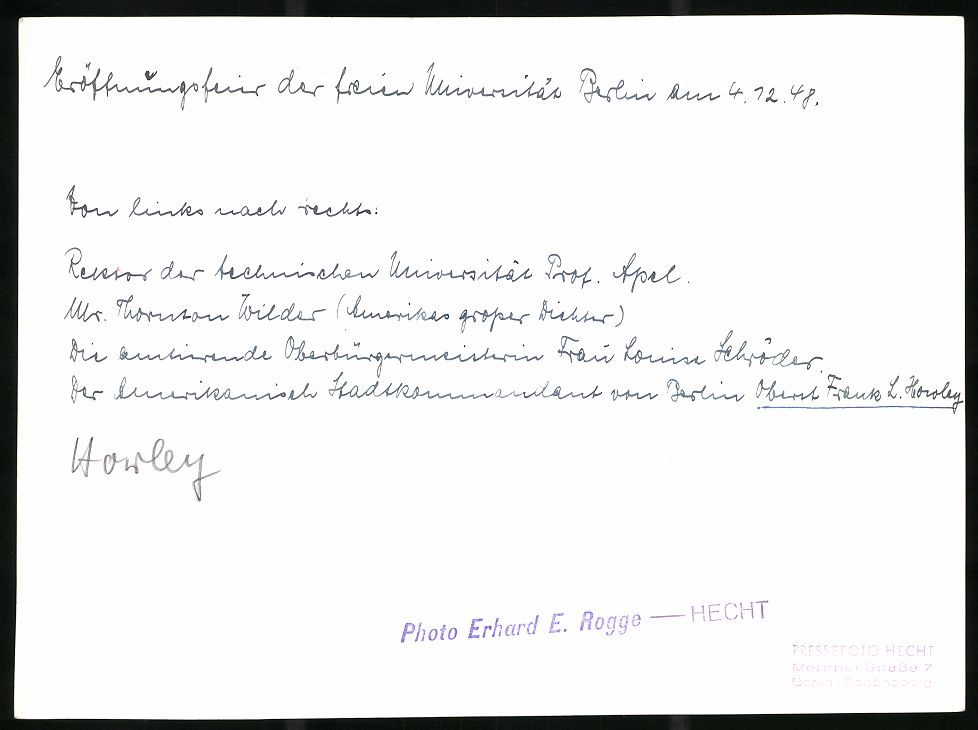 Eröffnungsfeier der freien Universität Berlin am 4.12.48.
Von links nach rechts:
Rektor der technischen Universität Prof. Apel.
Mr. Thornton Wilder (Amerikas großer Dichter)
Die amtierende Oberbürgermeisterin Frau Louise Schröder.
Der Amerikanisch Stadtkommandant von Berlin Oberst Frank L. Howley
Howley
Photo Erhard E. Rogge — HECHT
PRESSEFOTO HECHT
Straße 7
Berlin-Schöneberg